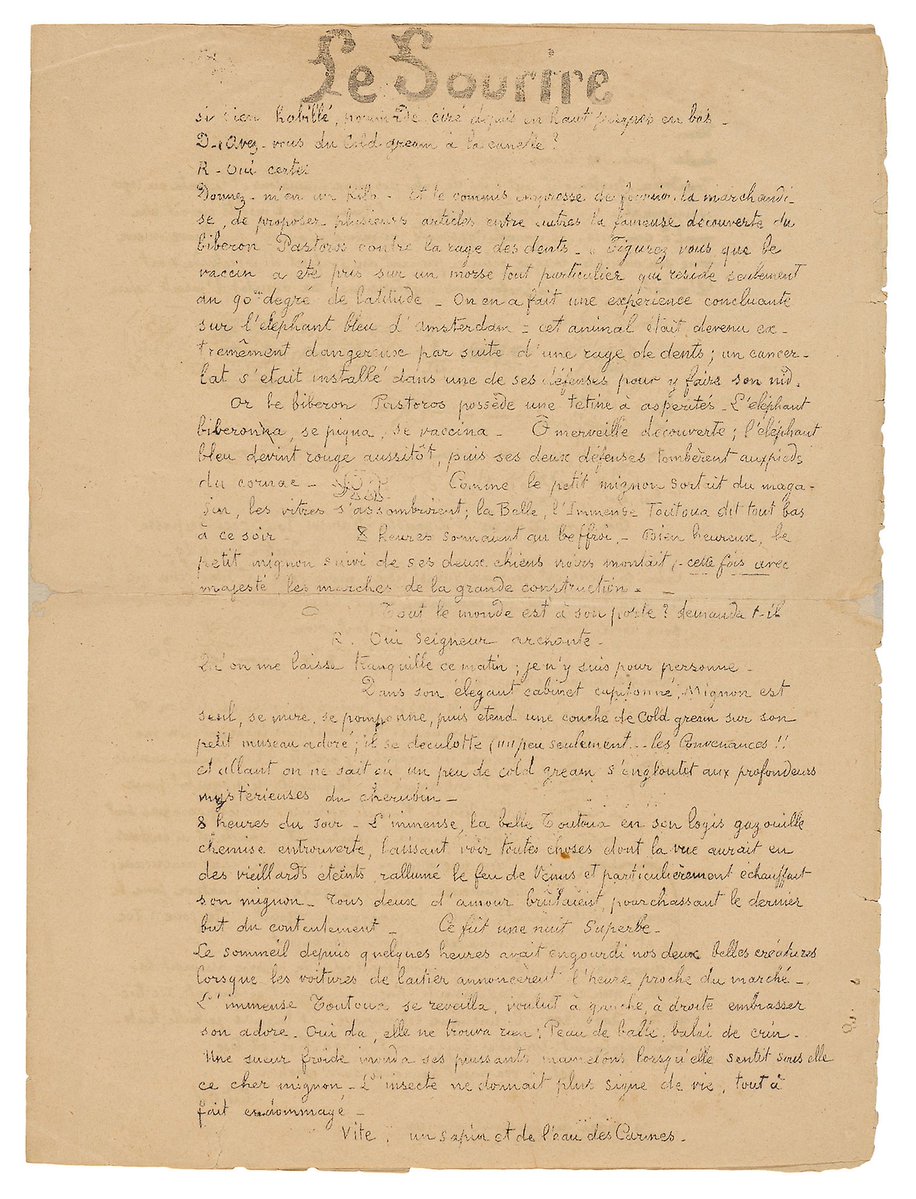 Le Sourire
si bien habillé, pommade cire depuis en haut jusques en bas -
D - Avez-vous du Cold gream à la canelle ?
R - Oui certes
Donnez-m'en un kilo - Et le commis empressé de fournir la marchandi
se, de proposer plusieurs articles entre autres la fameuse découverte du
biberon Pastoros contre la rage des dents - Figurez vous que le
vaccin a été pris sur un morse tout particulier qui réside seulement
au 90me degré de latitude - On en a fait une expérience concluante
sur l'eléphant bleu d'Amsterdam = cet animal était devenu ex-
tremêment dangereux par suite d'une rage de dents ; un cancer-
lat s'était installé dans une de ses défenses pour y faire son nid.
Or le biberon Pastoros possède une tetine à asperités - L'eléphant
biberonna, se piqua, se vaccina - O merveille découverte ; l'eléphant
bleu devint rouge aussitôt, puis ses deux défenses tombèrent aux pieds
du cornac - Comme le petit mignon sortait du maga-
sin, les vitres s'assombrirent ; la Belle, l'Immense Toutoua dit tout bas
à ce soir 8 heures sonnaient au beffroi, - Bien heureux, le
petit mignon suivi de ses deux chiens noirs montait, - cette fois avec
majesté, les marches de la grande construction -
Tout le monde est à son poste ? demanda t-il
R. Oui Seigneur archonte -
Qu'on me laisse tranquille ce matin ; je n'y suis pour personne -
Dans son élégant cabinet capitonné, Mignon est
seul, se mire, se pomponne, puis etend une couche de Cold gream sur son
petit museau adoré ; il se deculotte (un peu seulement... les Convenances !!
et allant on ne sait où, un peu de cold gream s'engloutit aux profondeurs
mystèrieuses du cherubin -
8 heures du soir - L'immense, la belle Toutoua en son logis gazouille
chemise entrouverte, laissant voir toutes choses dont la vue aurait en
des vieillards eteints, rallumé le feu de Vénus et particulièrement échauffait
son mignon - Tous deux d'amour brûlaient, pourchassant le dernier
but du contentement - Ce fut une nuit Superbe -
Le sommeil depuis quelques heures avait engourdi nos deux belles créatures
lorsque les voitures de laitier annoncèrent l'heure proche du marché -
L'immense Toutoua se reveilla, voulut à gauche, à droite embrasser
son adoré. Oui da, elle ne trouva rien ; Peau de balle, balai de crin -
Une sueur froide inonda ses puissants mamelons lorsqu'elle sentit sous elle
ce cher mignon - L'insecte ne donnait plus signe de vie, tout à
fait endommagé -
Vite, un sapin et de l'eau des Carmes -